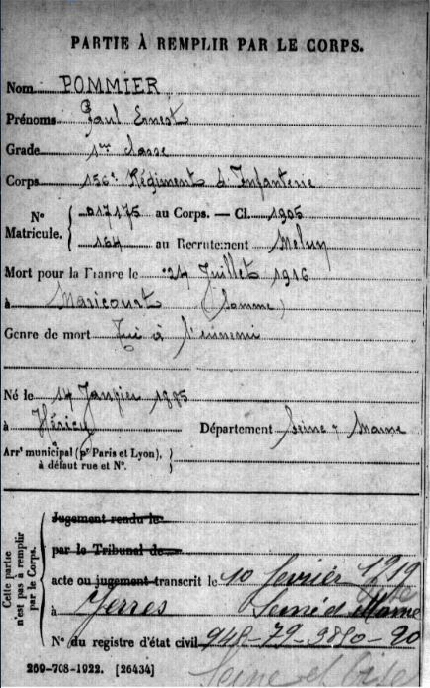 PARTIE À REMPLIR PAR LE CORPS.
Nom POMMIER
Prénoms Paul Ernest
Grade 1re classe
Corps 156e Régiment d'Infanterie
N° Matricule. 017175 au Corps. — Cl. 1905
164 au Recrutement Melun
Mort pour la France le 24 Juillet 1916
à Maricourt (Somme)
Genre de mort Tué à l'ennemi
Né le 14 Janvier 1885
à Héricy Département Seine & Marne
Arrt municipal (pr Paris et Lyon),
à défaut rue et N°.
Cette partie n'est pas à remplir par le Corps.
Jugement rendu le
par le Tribunal de
acte ou jugement transcrit le 10 février 1919
à Yerres Seine et Marne
N° du registre d'état civil 948-79-9810-20
269-708-1922. [26434]
Seine et Oise